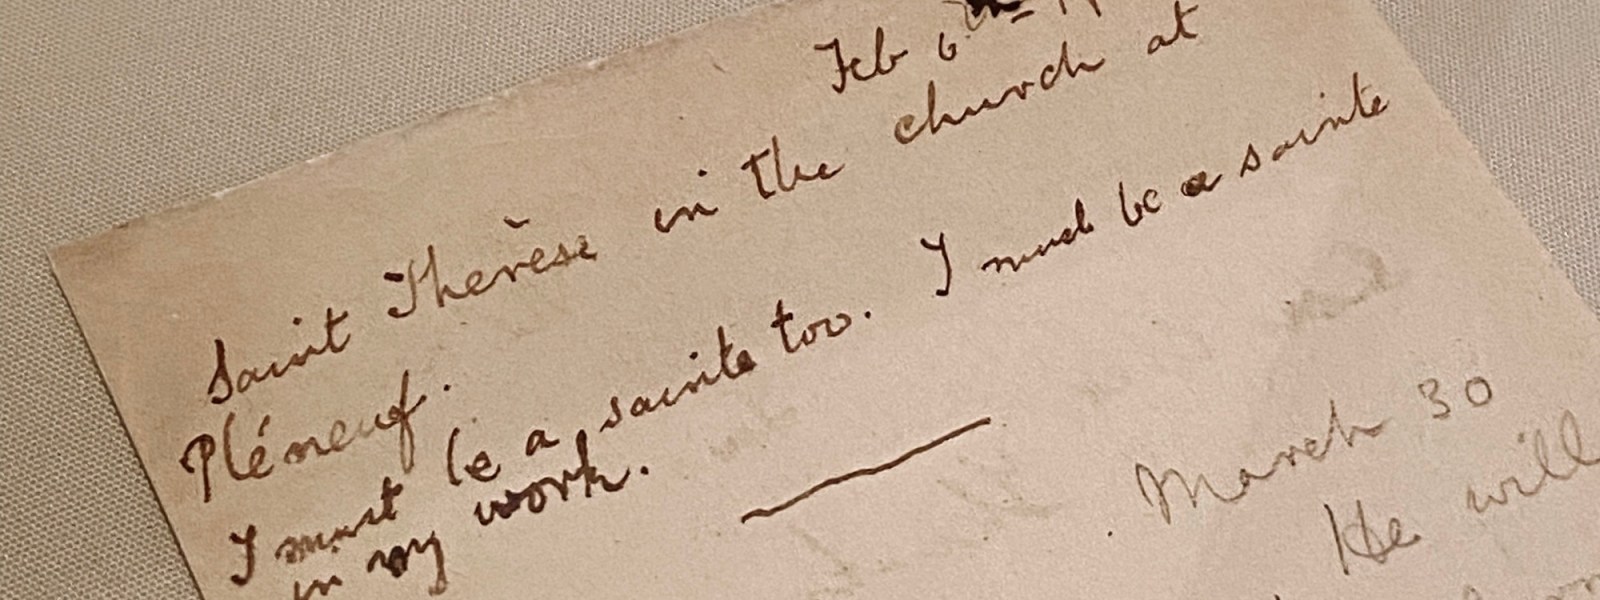 Feb 6th
Saint Therèse in the church at
Pléneuf.
I must be a sainte too. I must be a sainte
in my work.
March 30
He will